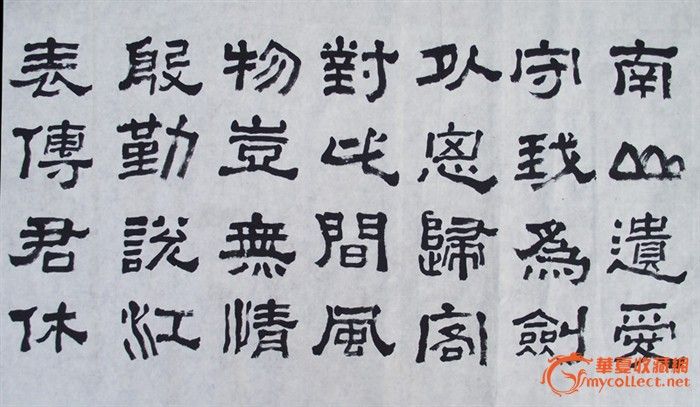 南山遺愛
守我為劍
外思歸客
對此間風
物豈無情
殷勤說江
表傳君休
華夏收藏網
mycollect.net